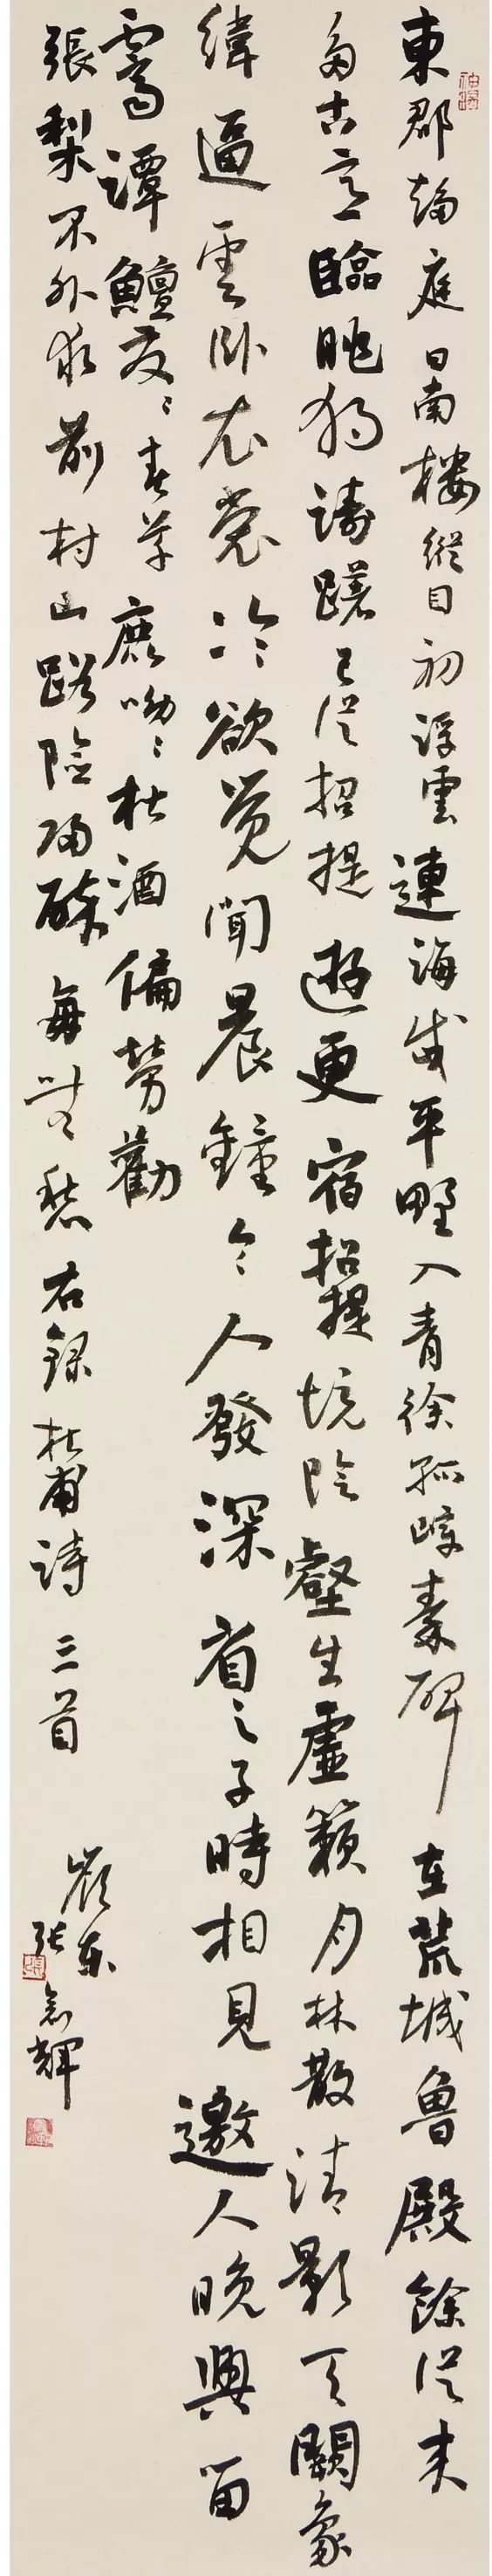 東郡趨庭日南樓縱目初浮雲連海岱平野入青徐孤嶂秦碑在荒城魯殿餘從來
多古意臨眺獨躊躇已從招提遊更宿招提境陰壑生虛籟月林散清影天闕象
緯逼雲臥衣裳冷欲覺聞晨鐘令人發深省之子時相見邀人晚興留
霽潭鱣發々春草鹿呦々杜酒偏勞勸
張梨不外求前村山路險歸醉每無愁右錄杜甫詩三首
嶺东
张輝